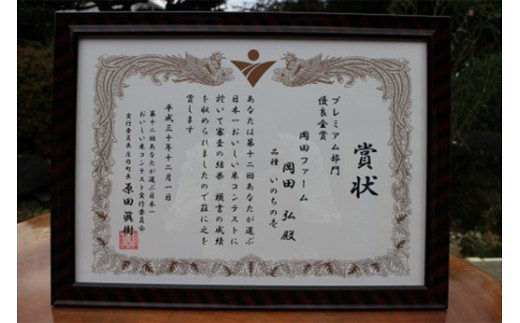 賞状
プレミアム部門
優良金賞
岡田ファーム
岡田 弘 殿
品種 いのちの壱
あなたは第十二回あなたが選ぶ
日本一おいしい米コンテストに
於いて審査の結果 頭書の成績
を収められましたので茲に之を
賞します
平成三十年十二月一日
第十二回あなたが選ぶ日本一
おいしい米コンテスト実行委員会
実行委員長庄内町長 原田眞樹